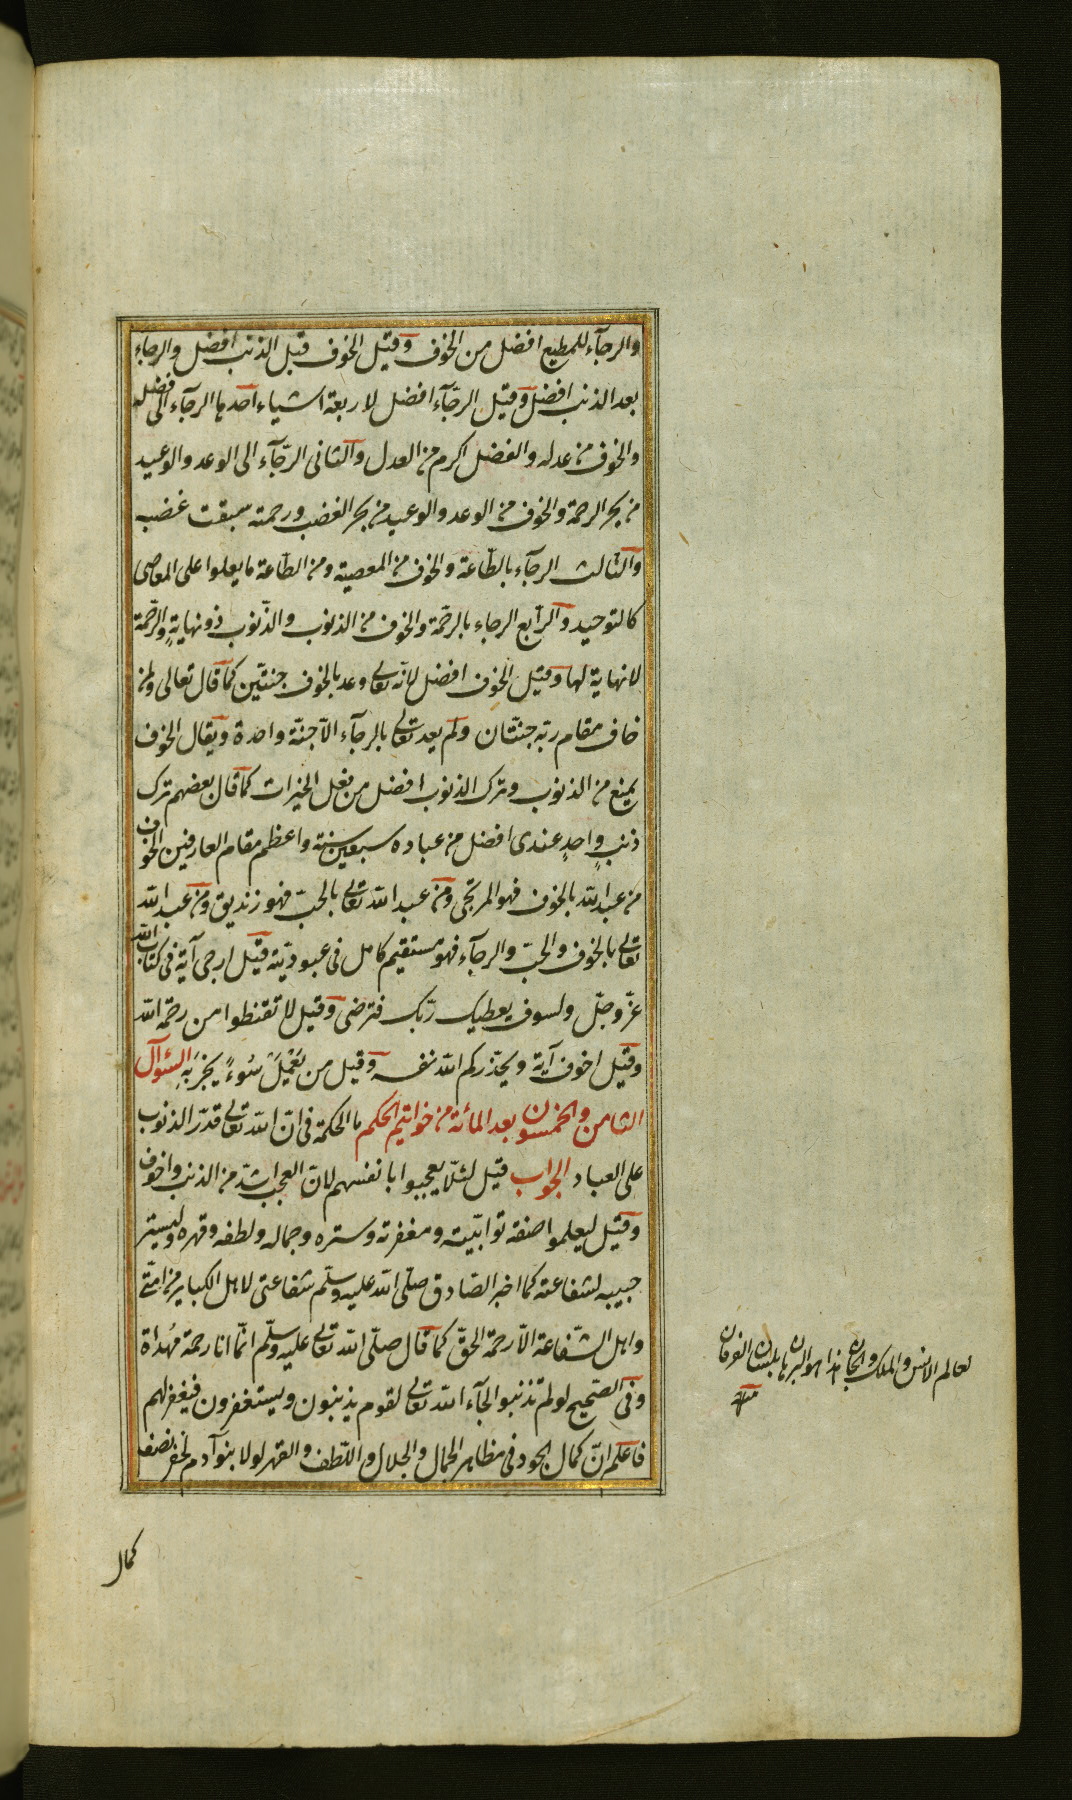 والرجآء للمطيع افضل من الخوف وقيل الخوف قبل الذنب افضل والرجاء
بعد الذنب افضل وقيل الرجّآء افضل لاربعة اشياء احدها الرجآء الى فضله
والخوف من عدله والفضل اكرم من العدل والثانى الرّجآء الى الوعد والوعيد
من بحر الرحمة والخوف من الوعد والوعيد من بحر الغضب ورحمته سبقت غضبه
والثالث الرجآء بالطّاعة والخوف من المعصية ومن الطّاعة ما يعلوا على المعاصى
كالتوحيد والرّابع الرجاء بالرحمّة والخوف من الذنوب والذّنوب ذو نهايةٍ والرّحمة
لا نهاية لها وقيل الخوف افضل لانّه تعالى وعد بالخوف جنتّين كما قال تعالى ولمن
خاف مقام ربّه جنّتان ولم يعد تعالى بالرجآء الّا جنّة واحدة ويقال الخوف
يمنع من الذنوب وترك الذنوب افضل من فعل الخيرات كما قال بعضهم ترك
ذنبٍ واحدٍ عندى افضل من عباده سبعين سنة واعظم مقام العارفين الخوف
من عبد اللّه بالخوف فهو المرتجى ومن عبد اللّه تعالى بالحبّ فهو زنديق ومن عبد اللّه
تعالى بالخوف والحبّ والرجآء فهو مستقيم كامل فى عبوديّته قيل ارجى آية فى كتاب اللّه
عزّ وجلّ ولسوف يعطيك ربّك فترضى وقيل لا تقنطوا من رحمة اللّه
وقيل اخوف آية ويحذّركم اللّه نفسه وقيل من يَعْمَلْ سُوءً يجْزَ بِهِ السئوآل
الثامن والخمسون بعد المائة من خواتيم الحكم ما الحكمة فى انّ اللّه تعالى قدّر الذنوب
على العباد الجواب قيل لئلّا يعجبوا بانفسهم لانّ العجب اشدّ من الذنب واخوف
وقيل ليعلموا صفة توابيّته ومغفرته وستره وجماله ولطفه وقهره وليستر
حبيبه لشفاعته كما اخبر الصّادق صلّى اللّه عليه وسلّم شفاعتى لاهل الكباير من امّتى
واهل الشّفاعة الّا رحمة الحقّ كما قال صلّى اللّه تعالى عليه وسلّم انّما انا رحمة مُهداة
وفى الصّحيح لو لم تذنبو الجآء اللّه تعالى لقوم يذنبون ويستغفرون فيغفر لهم
فاعلم انّ كمال الجود فى مظاهر الجمال والجلال واللّطف والقهر لولا بنوآدم نصف
لعالم الانس والملك والجان هذا هو البرهان بلسان الفرقان
منه
كمال